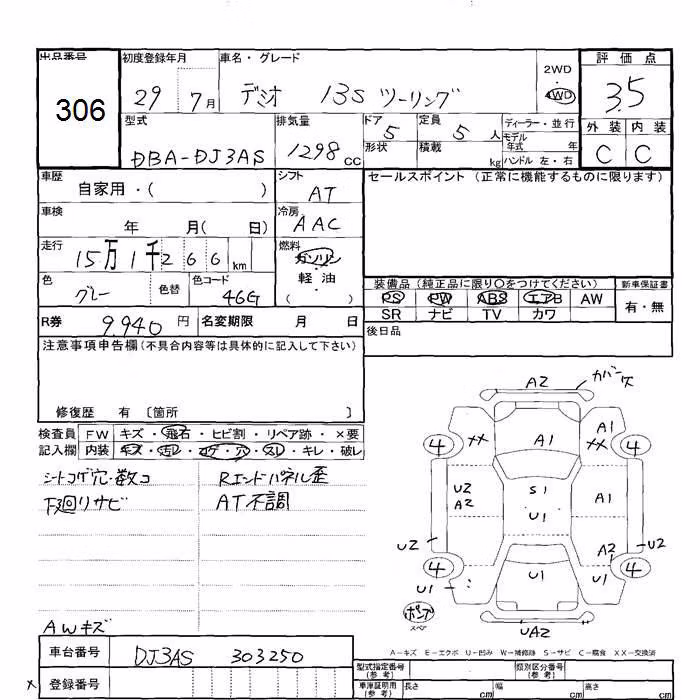 出品番号
306
初度登録年月
29 7月
車名・グレード
デミオ 13S ツーリング
2WD
4WD
評価点
3.5
型式
DBA-DJ3AS
排気量
1298cc
ドア
5
定員
5人
形状
積載 kg
ディーラー・並行
モデル年式 年
ハンドル 左・右
外装 内装
C C
車歴
自家用・( )
シフト
AT
セールスポイント (正常に機能するものに限ります)
車検
年 月( 日)
冷房
AAC
走行
15万1千266km
燃料
ガソリン
・
軽・油
( )
色
グレー
色替
色コード
46G
装備品 (純正品に限り○をつけてください)
新車保証書
PS PW ABS エアB AW
有・無
SR ナビ TV カワ
R券 9,940円
名変期限 月 日
後日品
注意事項申告欄(不具合内容等は具体的に記入して下さい)
修復歴 有 〔箇所 〕
検査員
記入欄
FW キズ・飛石・ヒビ割・リペア跡・×要
内装 キズ・汚レ・コゲ・穴・スレ・キレ・破レ
シートコゲ穴・数コ
下廻リサビ
Rエンドパネル歪
AT不調
A2
カバーズ
4
XX
A1
A1
XX
4
U2
A2
S1
U1
A1
U2
U2
4
A2
4
U1
U1
U1
ポンプ
スペア
UA2
AWキズ
A-キズ E-エクボ U-凹み W-補修跡 S-サビ C-腐食 XX-交換済
車台番号
DJ3AS 303250
x
登録番号
型式指定番号
(参考)
類別区分番号
(参考)
車庫証明用
(参考)
長さ cm
幅 cm
高さ cm